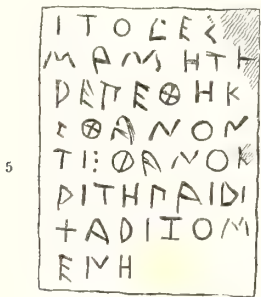 ΙΤΟΔΕΣ
ΜΑΜΗΤΗ
ΡΕΠΕΘΗΚ
ΕΘΑΝΟΝ
5 ΤΙ⁝ΦΑΝΟΚ
ΡΙΤΗΠΑΙΔΙ
ΧΑΡΙΖΟΜ
ΕΝΗ